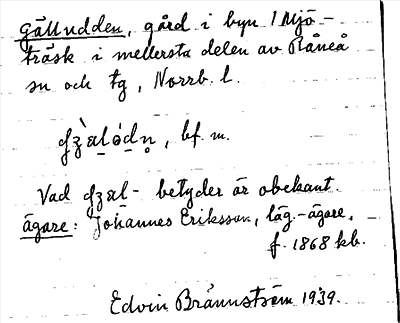 Gälludden, gård i byn Mjö-
träsk i mellersta delen av Råneå
sn och tg, Norrb. l.
bf. m.
Vad betyder är obekant.
ägare: Johannes Eriksson, läg.-ägare,
f. 1868 kb.
Edvin Brännström 1939.